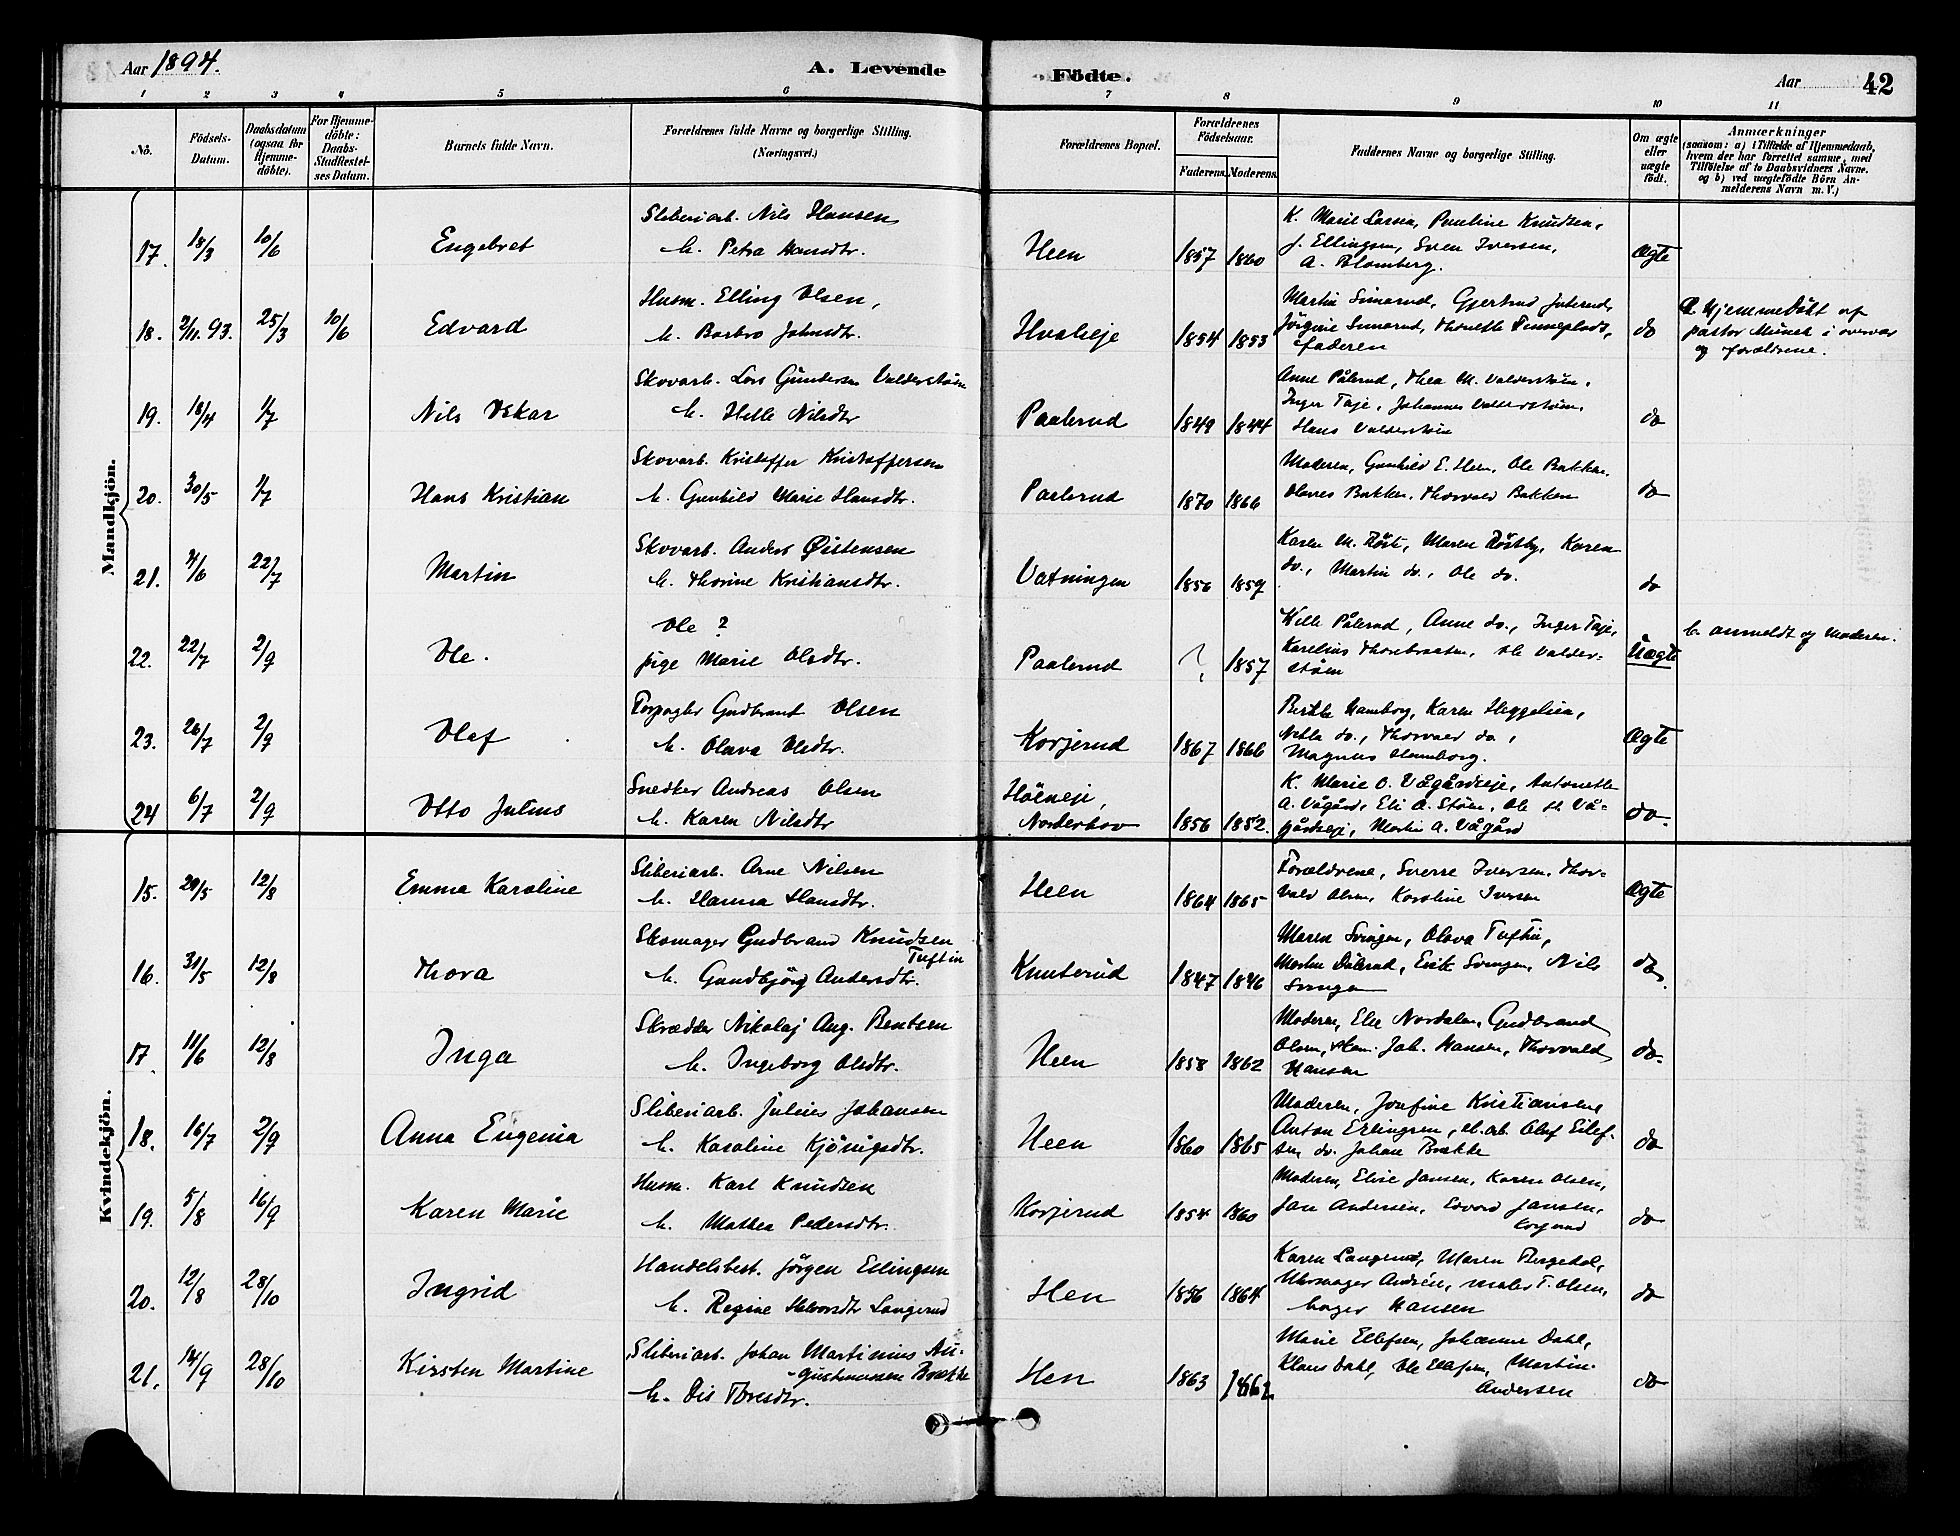 Aar 1894.
A. Levende
Födte.
Aar
42
1 2 3 4 5 6 7 8 9 10 11
No.
Födsels-Datum.
Daabsdatum (ogsaa for Hjemme-döbte).
For Hjemme-döbte: Daabs-Stadfæstel-ses Datum.
Barnets fulde Navn.
Forældrenes fulde Navne og borgerlige Stilling. (Næringsvei.)
Forældrenes Bopæl.
Forældrenes Födselsaar.
Faderens. Moderens.
Faddernes Navne og borgerlige Stilling.
Om ægte eller uægte födt.
Anmærkninger (saasom: a) i Tilfælde af Hjemmedaab, hvem der har forrettet samme, med Tilföielse af to Daabsvidners Navne. og b) ved uægtefödte Börn An-melderens Navn m. V.)
Mandkjön.
17. 18/3 10/6 Engebret
Sliberiarb. Nils Hansen
h. Petra Hansdtr.
Heen 1857 1860
K. Marie Larsen, Pauline Knudsen,
J. Ellingsen, Sven Iversen,
A. Blomberg.
Ægte
18. 2/11. 93. 25/3 10/6 Edvard
Husm. Elling Olsen,
h. Barbro Johnsdtr.
Hvaleeje 1854 1853
Martin Simarud, Gjertrud
Jörgine Simarud,
faderen
do
Hjemmedöbt af
pastor Münch i overvær
af forældrene.
19. 18/4 1/7 Nils Oskar
Skovarb. Lars Gundersen Valderstöen
h. Helle Nilsdtr
Paalerud 1849 1844
Anne Pålerud, Thea M. Valderstöen,
Inger Taje, Johannes Valderstöen,
Hans Valderstöen
do
20. 30/5 1/7 Hans Kristian
Skovarb. Kristoffer Kristoffersen
h. Gunhild Marie Hansdtr.
Paalerud 1870 1866
Moderen, Gunhild E. Heen, Ole Bakken.
Olaves Bakken, Thorvald Bakken
do
21. 4/6 22/7 Martin
Skovarb. Anders Östensen
h. Thorine Kristiansdtr.
Vætningen 1856 1859
Karen M. Maren Röstby, Karen
do., Martin do., Ole do.
do
22. 22/7 2/9 Ole.
Ole ?
pige Marie Olsdtr.
Paalerud ? 1857
Kille Pålerud, Anne do., Inger Taje,
Karelius Thorebraaten, Ole Valder-
stöen
Uægte
b. anmeldt af Moderen.
23. 26/7 2/9 Olaf
Gudbrant Olsen
h. Olava Olsdtr.
Korjerud 1867 1866
Berthe Hamborg, Karen Heggelien,
do., Thorvald do.,
Magnus Hamborg.
Ægte
24 6/7 2/9 Otto Julius
Snedker Andreas Olsen
h. Karen Nilsdtr
Norderhov 1856 1852.
K. Marie O. Vågårdseje, Antonette
A. Vågård, Eli A. Stöen, Ole H. Vå-
gårdseje, Martin A. Vågård
do.
Kvindekjön.
15. 29/5 12/8 Emma Karoline
Sliberiarb. Arne Nilsen
h. Hanna Hansdtr.
Heen 1864 1865
Forældrene, Sverre Iversen, Thor-
vald Olsen, Karoline Iversen
Ægte
16. 31/5 12/8 Thora
Skomager Gudbrand Knudsen
Tuftin
h. Gundbjörg Andersdtr.
Knuterud 1847 1846
Maren Svingen, Olava Tuftin,
Erik Svingen, Nils
Svingen
do.
17. 11/6 12/8 Inga
Skrædder Nikolaj Aug. Bentsen
h. Ingeborg Olsdtr.
Heen 1858 1862
Moderen, Elie Nordalen, Gudbrand
Olsen, Joh. Hansen, Thorvald
Hansen
do.
18. 16/7 2/9 Anna Eugenia
Sliberiarb. Julius Johansen
h. Karoline Kjönigsdtr.
Heen 1860 1865
Moderen, Josefine Kristiansen,
Anton Erlingsen, Olaf Eilef-
sen do. Johan Brække
do
19. 5/8 16/9 Karen Marie
Husm. Karl Knudsen
h. Mathea Pedersdtr.
Korjerud 1854 1860
Moderen, Elise Jansen, Karen Olsen,
Jan Andersen, Edvard Jansen,
Korjerud
do
20. 12/8 28/10 Ingrid
Handelsbest. Jörgen Ellingsen
h. Regine Halvorsdtr Langerud
Hen 1856 1864
Karen Langerud, Maren Bergedal,
Uhrmager Andrén, maler T. Olsen,
bager Hansen
do
21. 14/9 28/10 Kirsten Martine
Sliberiarb. Johan Martinius Au-
gustinussen Brække
h. Dis Toresdtr.
Hen 1863 1862
Marie Ellefsen, Johanne Dahl,
Klaus Dahl, Ole Ellefsen, Martin
Andersen
do